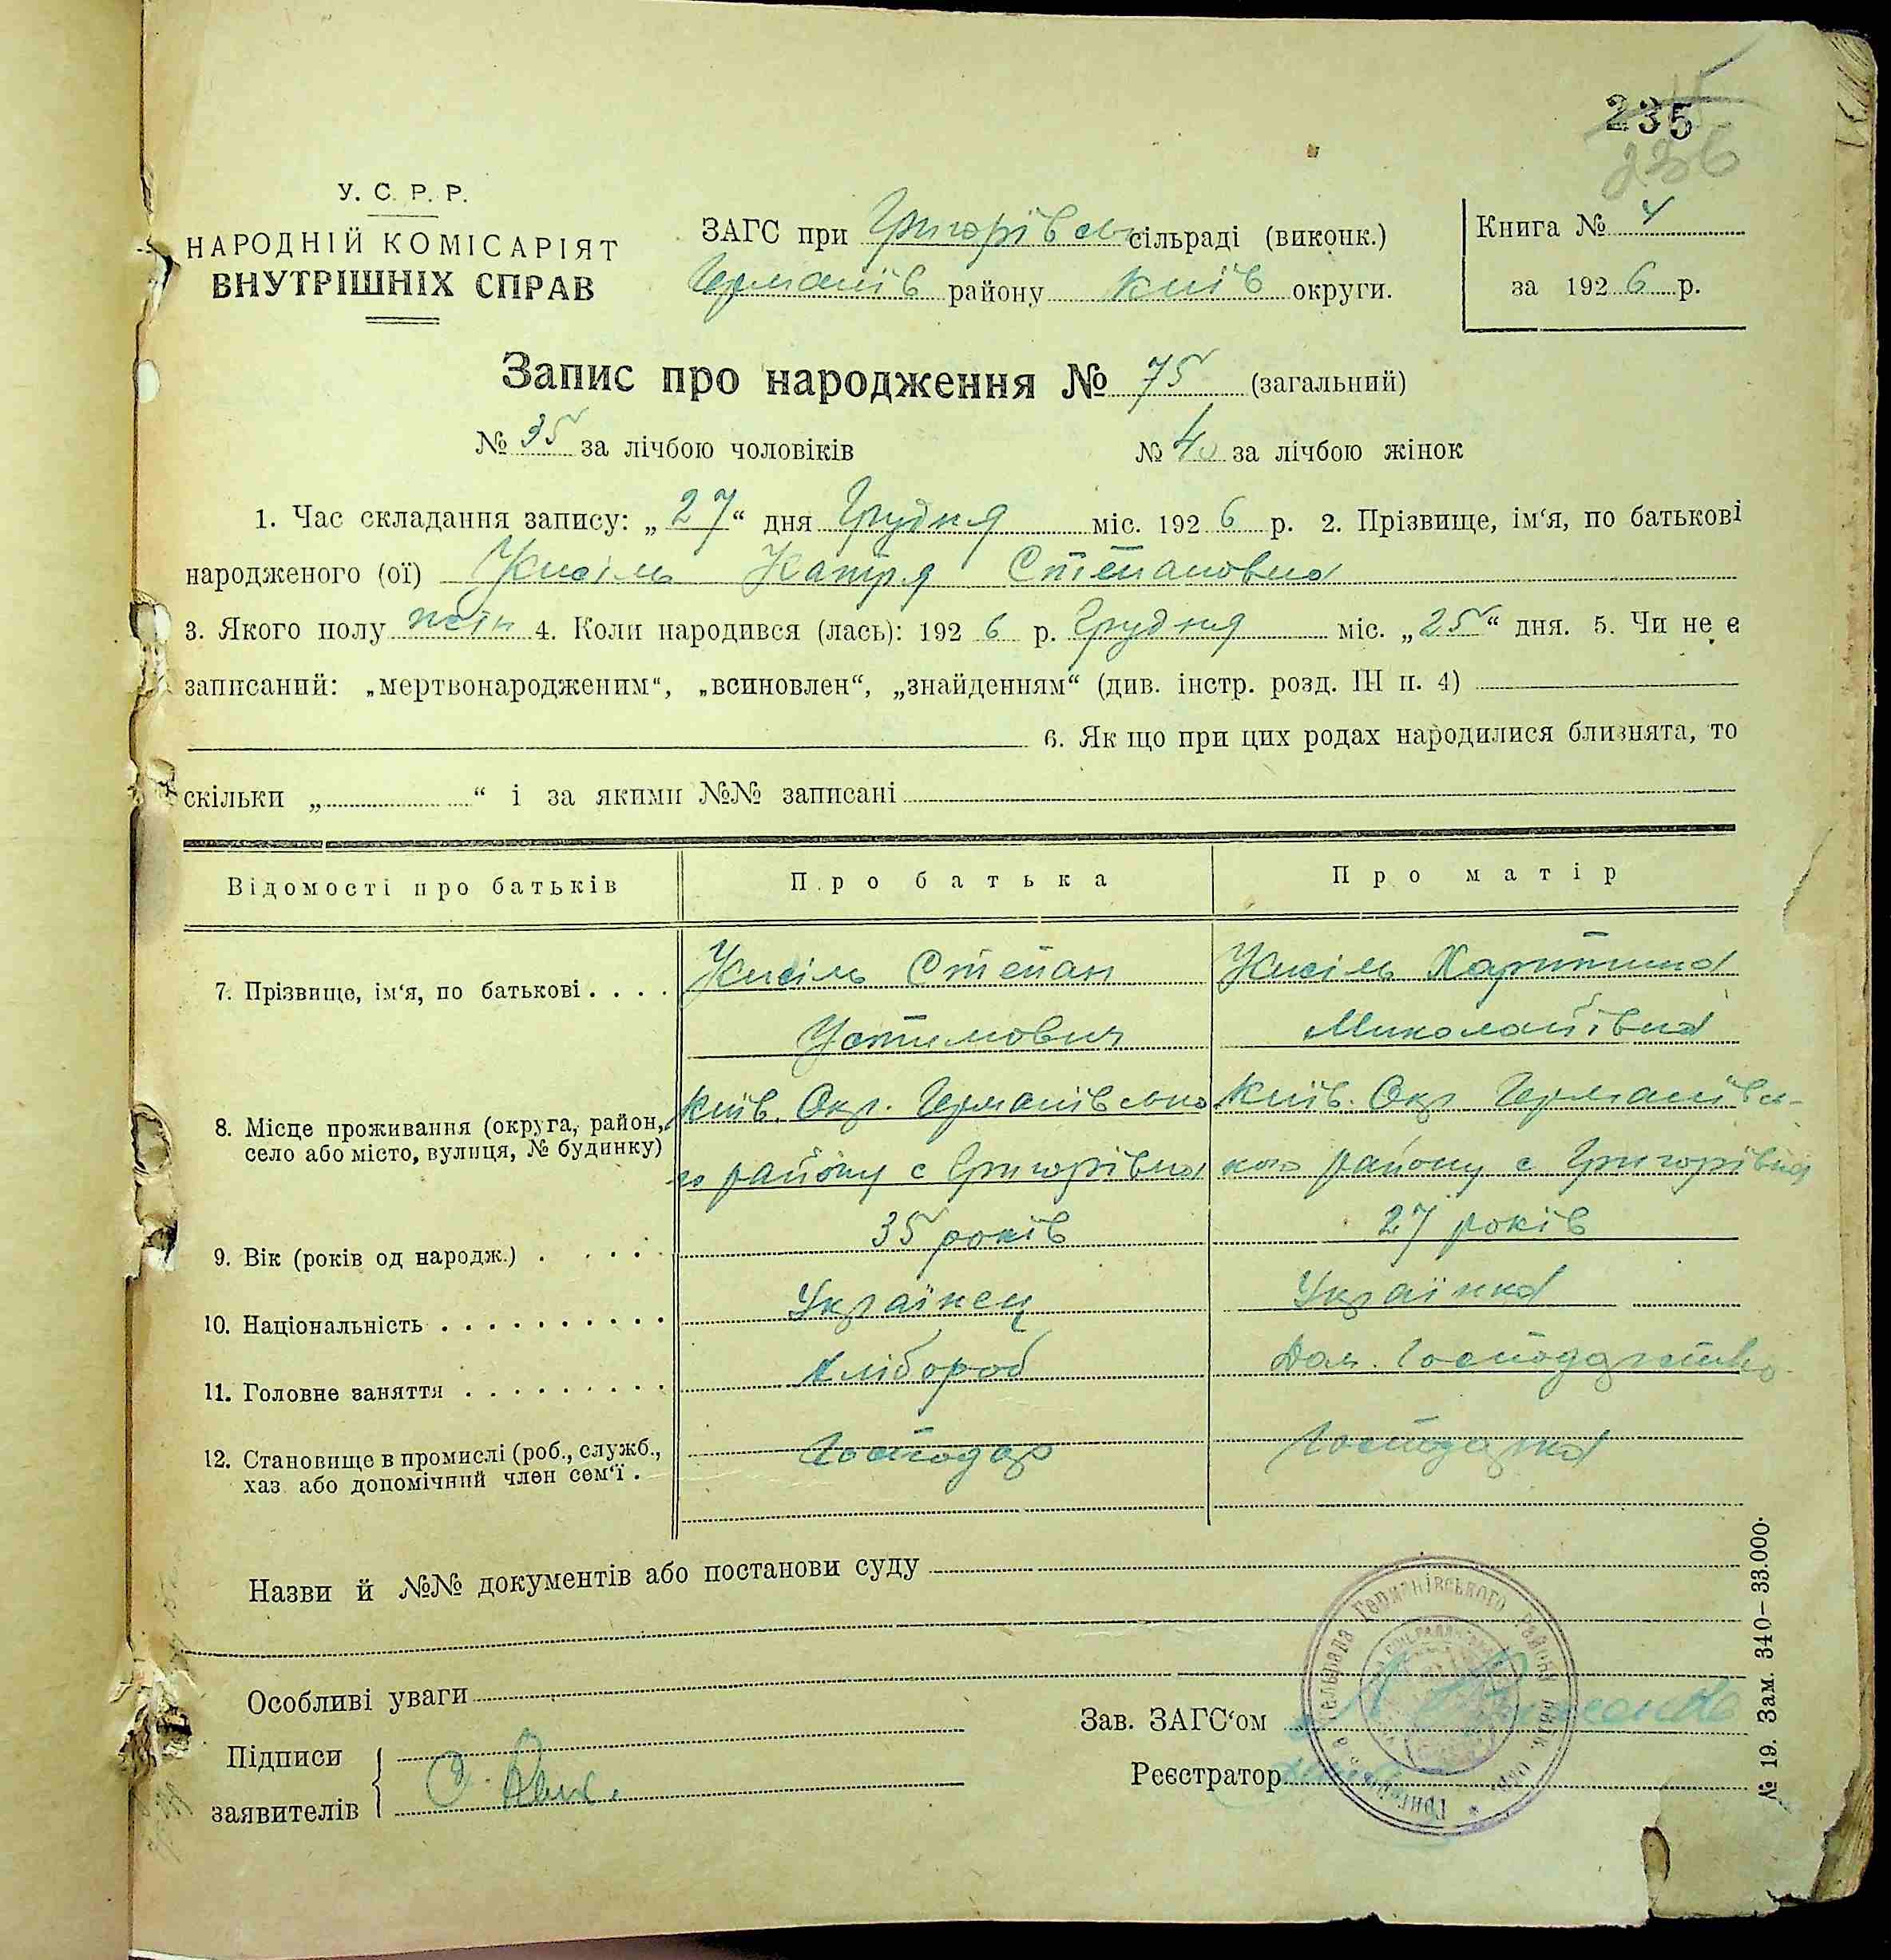 235
236
У. С. Р. Р.
НАРОДНІЙ КОМІСАРІЯТ
ВНУТРІШНІХ СПРАВ
ЗАГС при Григорівсь сільраді (виконк.)
Германів району Київ округи.
Книга № 4
за 1926 р.
Запис про народження № 75 (загальний)
№ 35 за лічбою чоловіків № 40 за лічбою жінок
1. Час складання запису: „27“ дня Грудня міс. 1926 р. 2. Прізвище, ім‘я, по батькові
народженого (ої) Кисіль Катря Степановна
3. Якого полу жін 4. Коли народився (лась): 1926 р. Грудня міс. „25“ дня. 5. Чи не є
записаний: „мертвонародженим“, „всиновлен“, „знайденням“ (див. інстр. розд. III п. 4)
6. Як що при цих родах народилися близнята, то
скільки „ “ і за якими №№ записані
Відомості про батьків Про батька Про матір
7. Прізвище, ім‘я, по батькові . . . . Кисіль Степан Кисіль Харитина
Устимович Миколаївна
8. Місце проживання (округа, район, село або місто, вулиця, № будинку) Київ. Окр. Германівсько Київ. Окр Германівсь-
го району с Григорівка кого району с Григорівка
9. Вік (років од народж.) . . . . . 35 років 27 років
10. Національність . . . . . . . . . . Українец Українка
11. Головне заняття . . . . . . . . . Хлібороб Дом. Господарство
12. Становище в промислі (роб., служб., хаз або допомічний член сем‘ї . Господар Господарка
Назви й №№ документів або постанови суду
Особливі уваги
Підписи
заявителів
Зав. ЗАГС‘ом
Реєстратор
Германівського району
№ 19. Зам. 340–33.000.